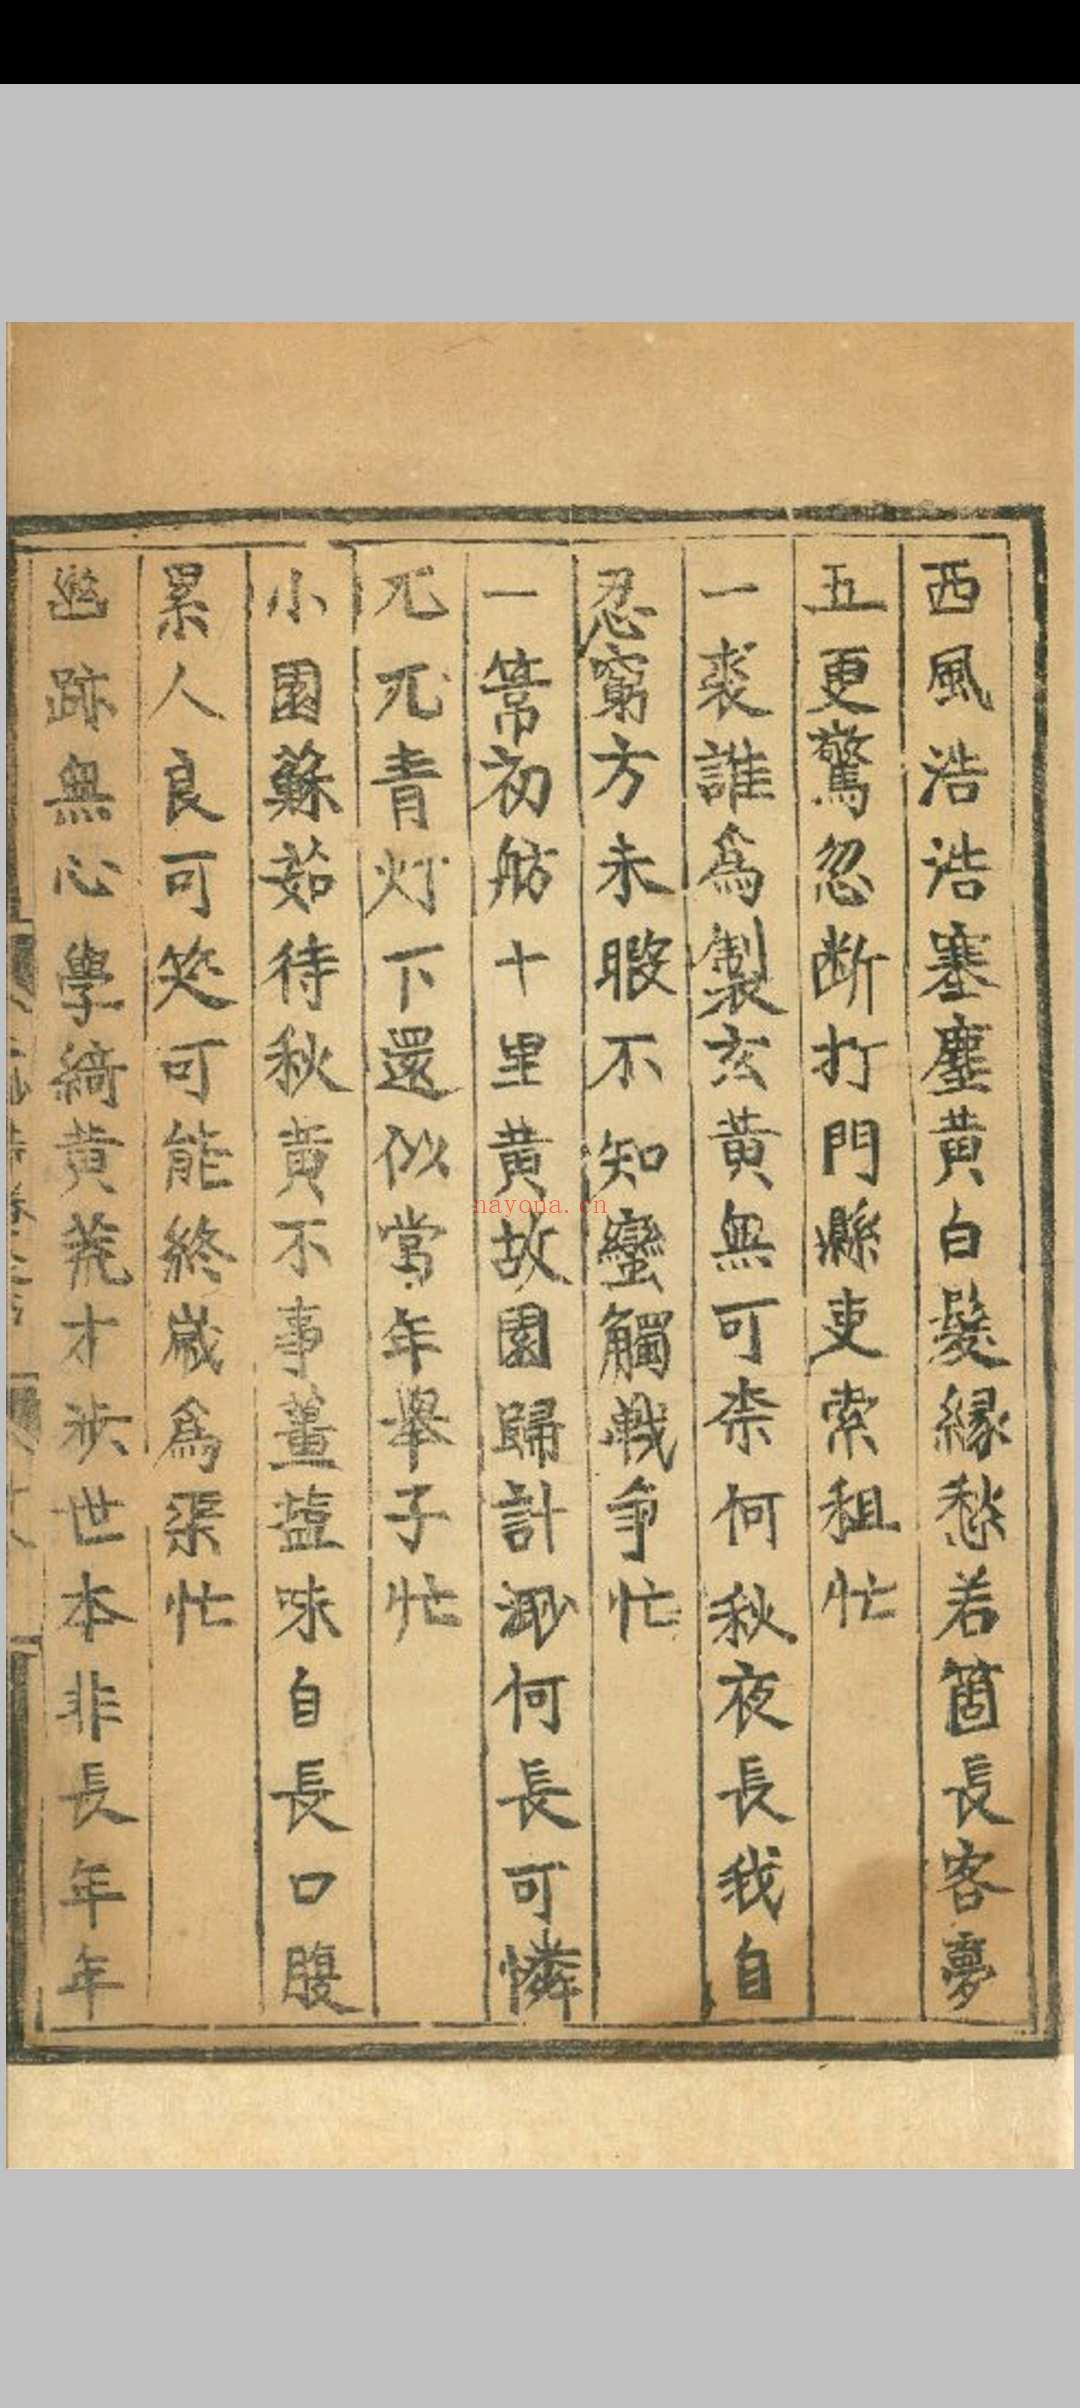 西風浩浩塞塵黄白髮緣愁若箇長客夢
五更驚忽断打門縣吏索租忙
一裘誰為製玄黄無可柰何秋夜長我自
忍窮方未暇不知蠻觸戰爭忙
一篙初舫十里黄故園歸計渺何長可憐
兀兀青灯下還似常年舉子忙
小園蘇茹待秋黄不事薑塩味自長口腹
累人良可笑可能終歳為渠忙
跡無心學綺黄荒才涉世本非長年年
nayona.cn